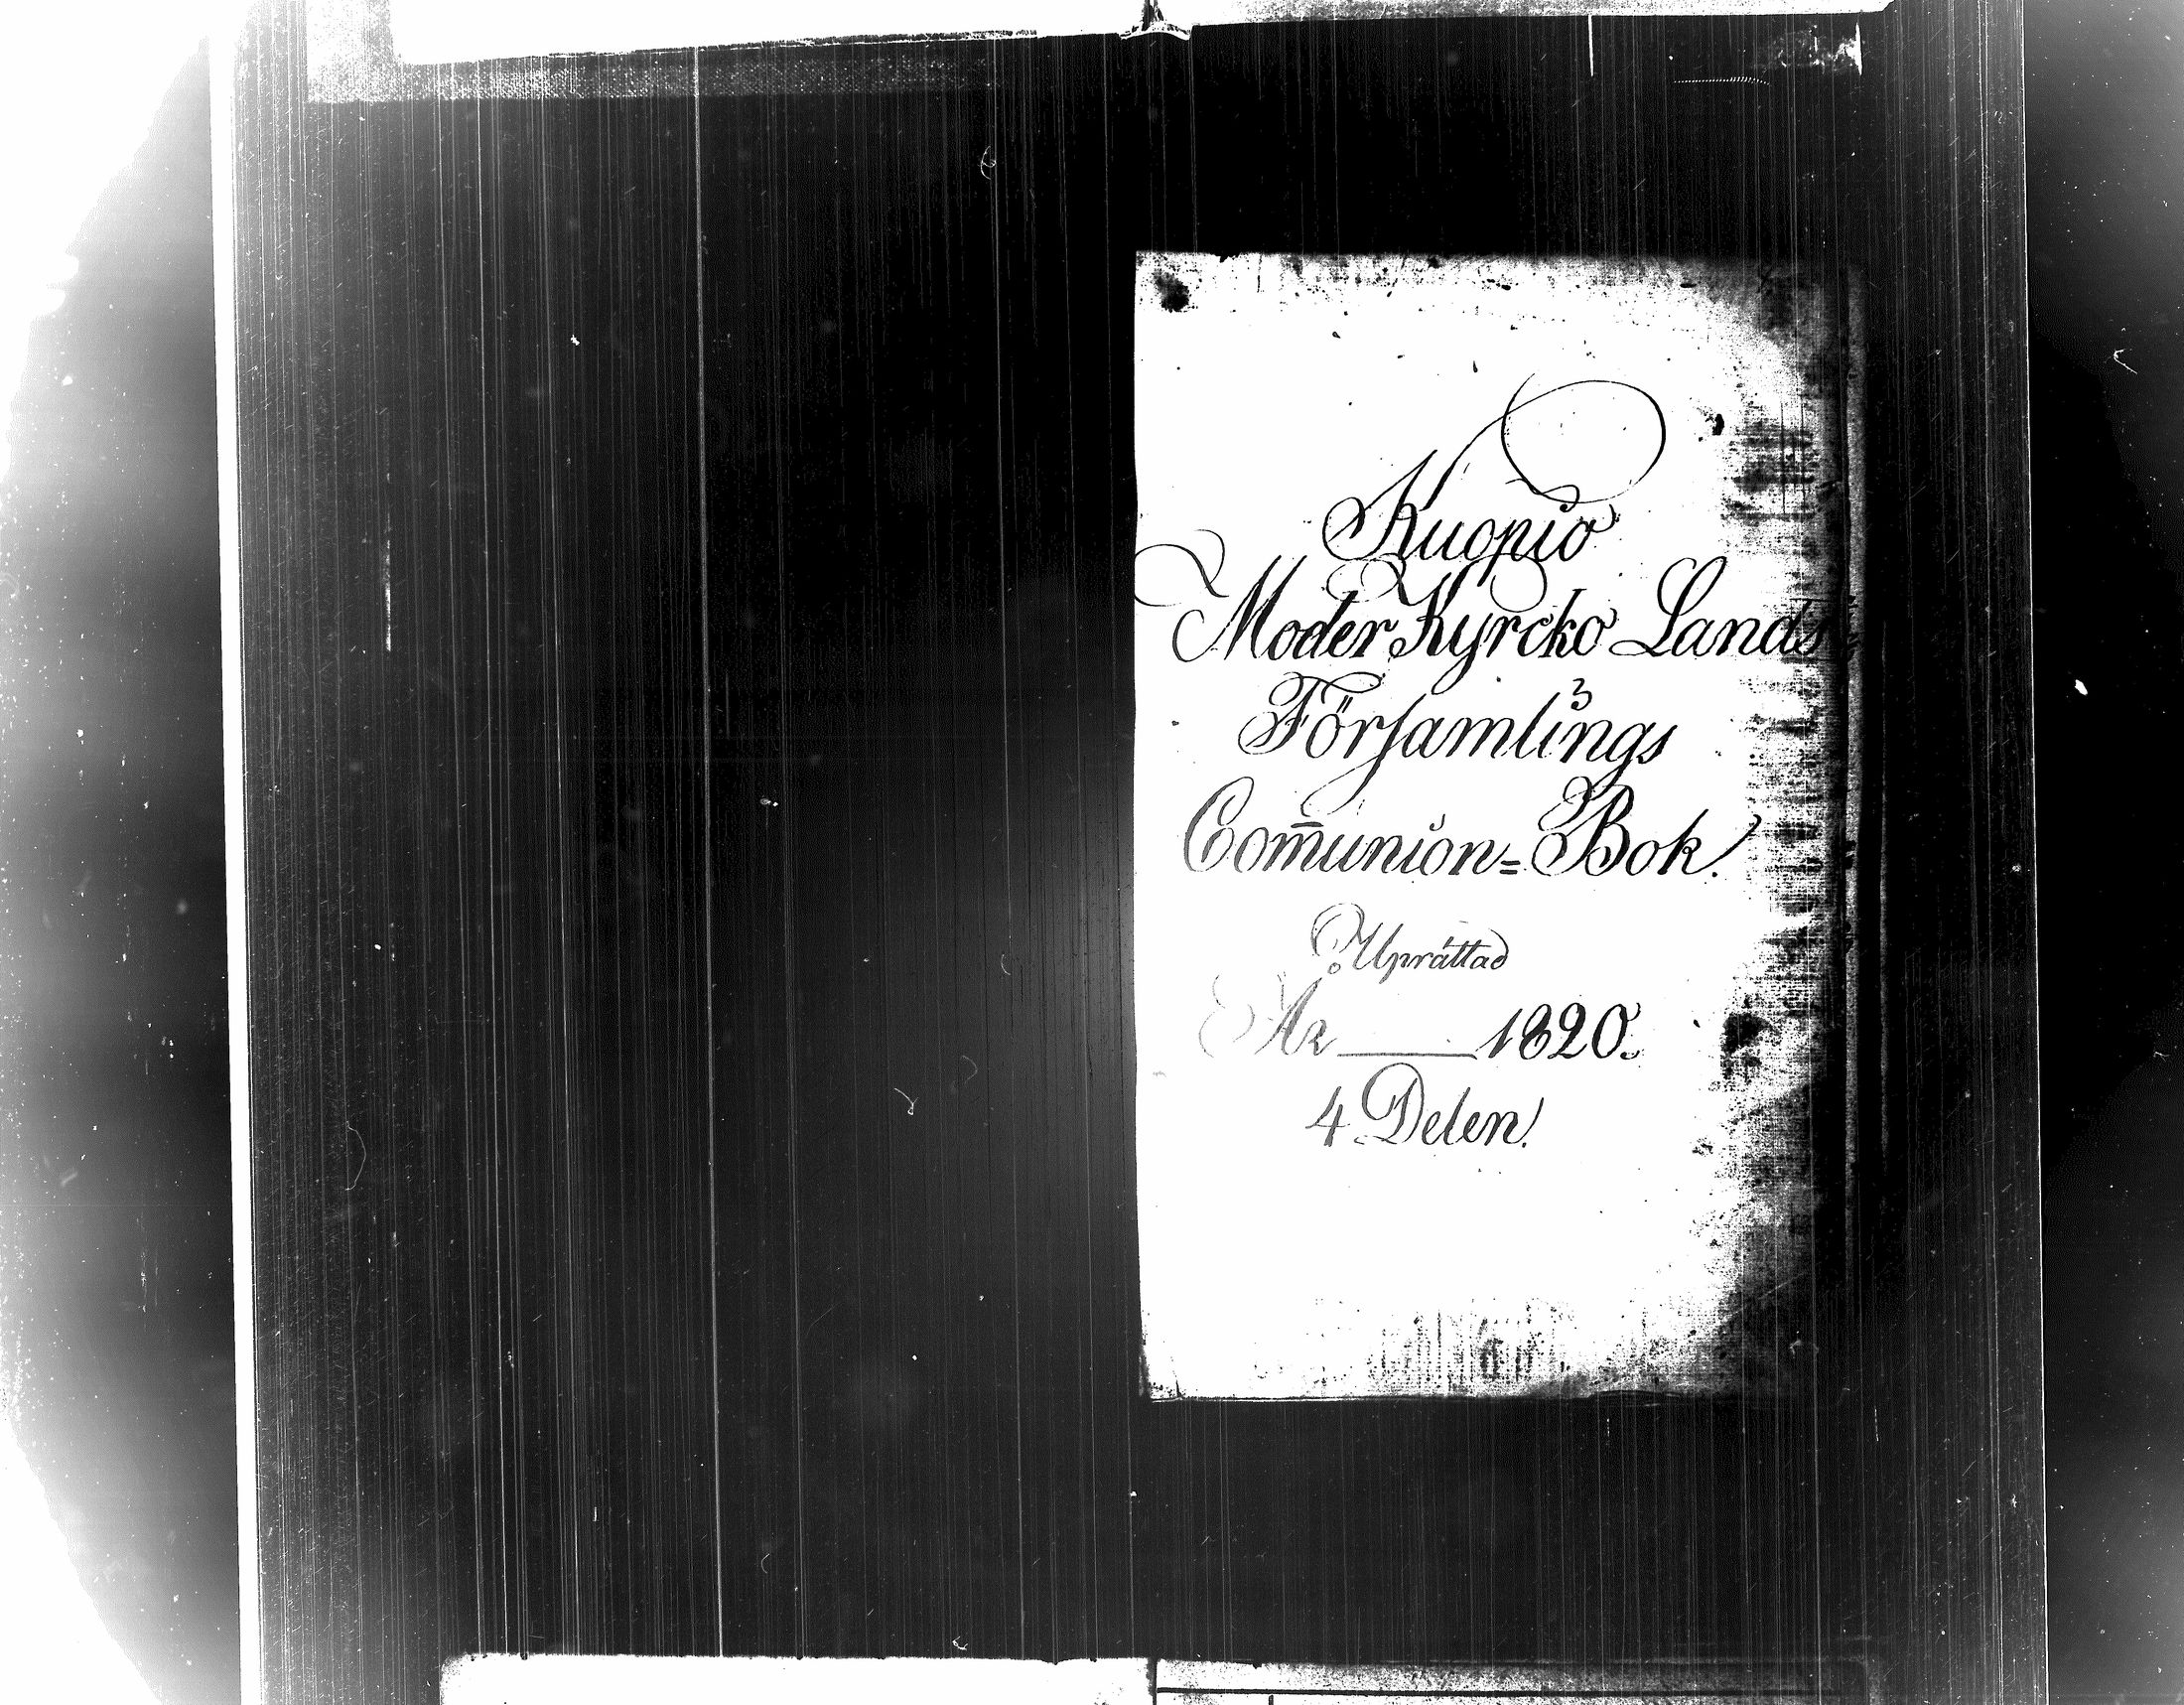 Kuopio
Moder Kyrcko Lands
Församlings
Com̄union=Bok.
Uprättad
År 1820.
4. Delen.